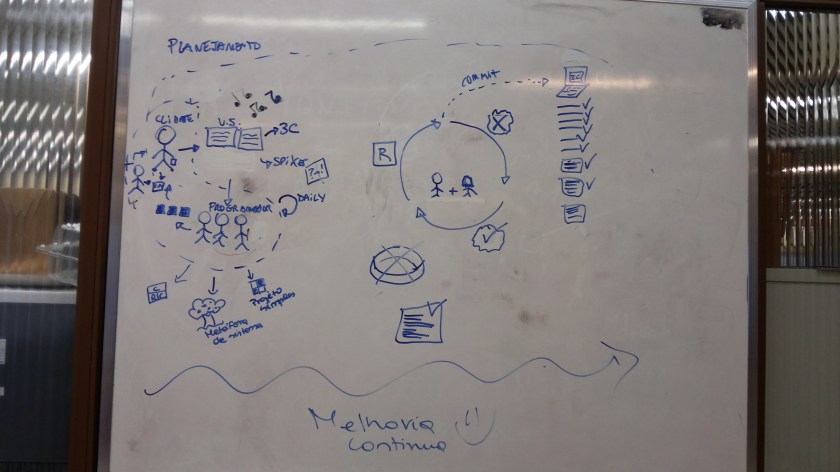 PLANEJAMENTO
COMMIT
CLIENTE
U.S.
3C
SPIKE
R
DAILY
PROGRAMADOR
PROJETO
SIMPLES
METÁFORA
DE SISTEMA
Melhoria
continua